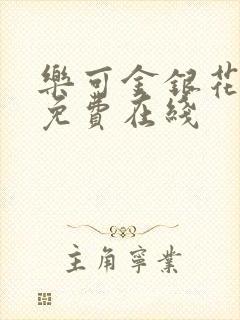 樂可金銀花
免費在綫
主角寧業